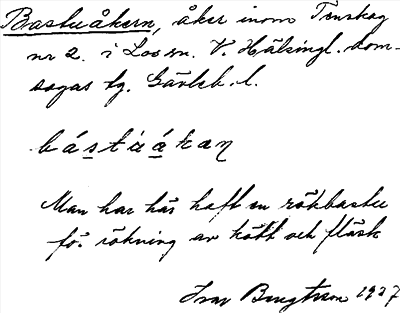 Bastuåkern, åker inom Tenskog
nr 2. i Los sn. V. Hälsingl. dom-
sagas tg. Gävleb. l.
bástuákaɳ
Man har här haft en rökbastu
för rökning av kött och fläsk
Ivar Bengtsson 1937